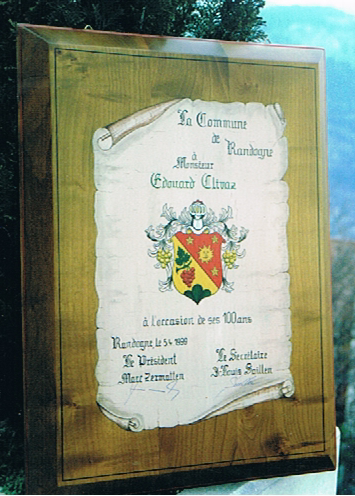 La Commune
de
Randogne
à
Monsieur
Edouard Clivaz
à l'occasion de ses 100ans
Randogne, le 5.4 1999
Le Président
Marc Zermatten
Le Secrétaire
J-Louis